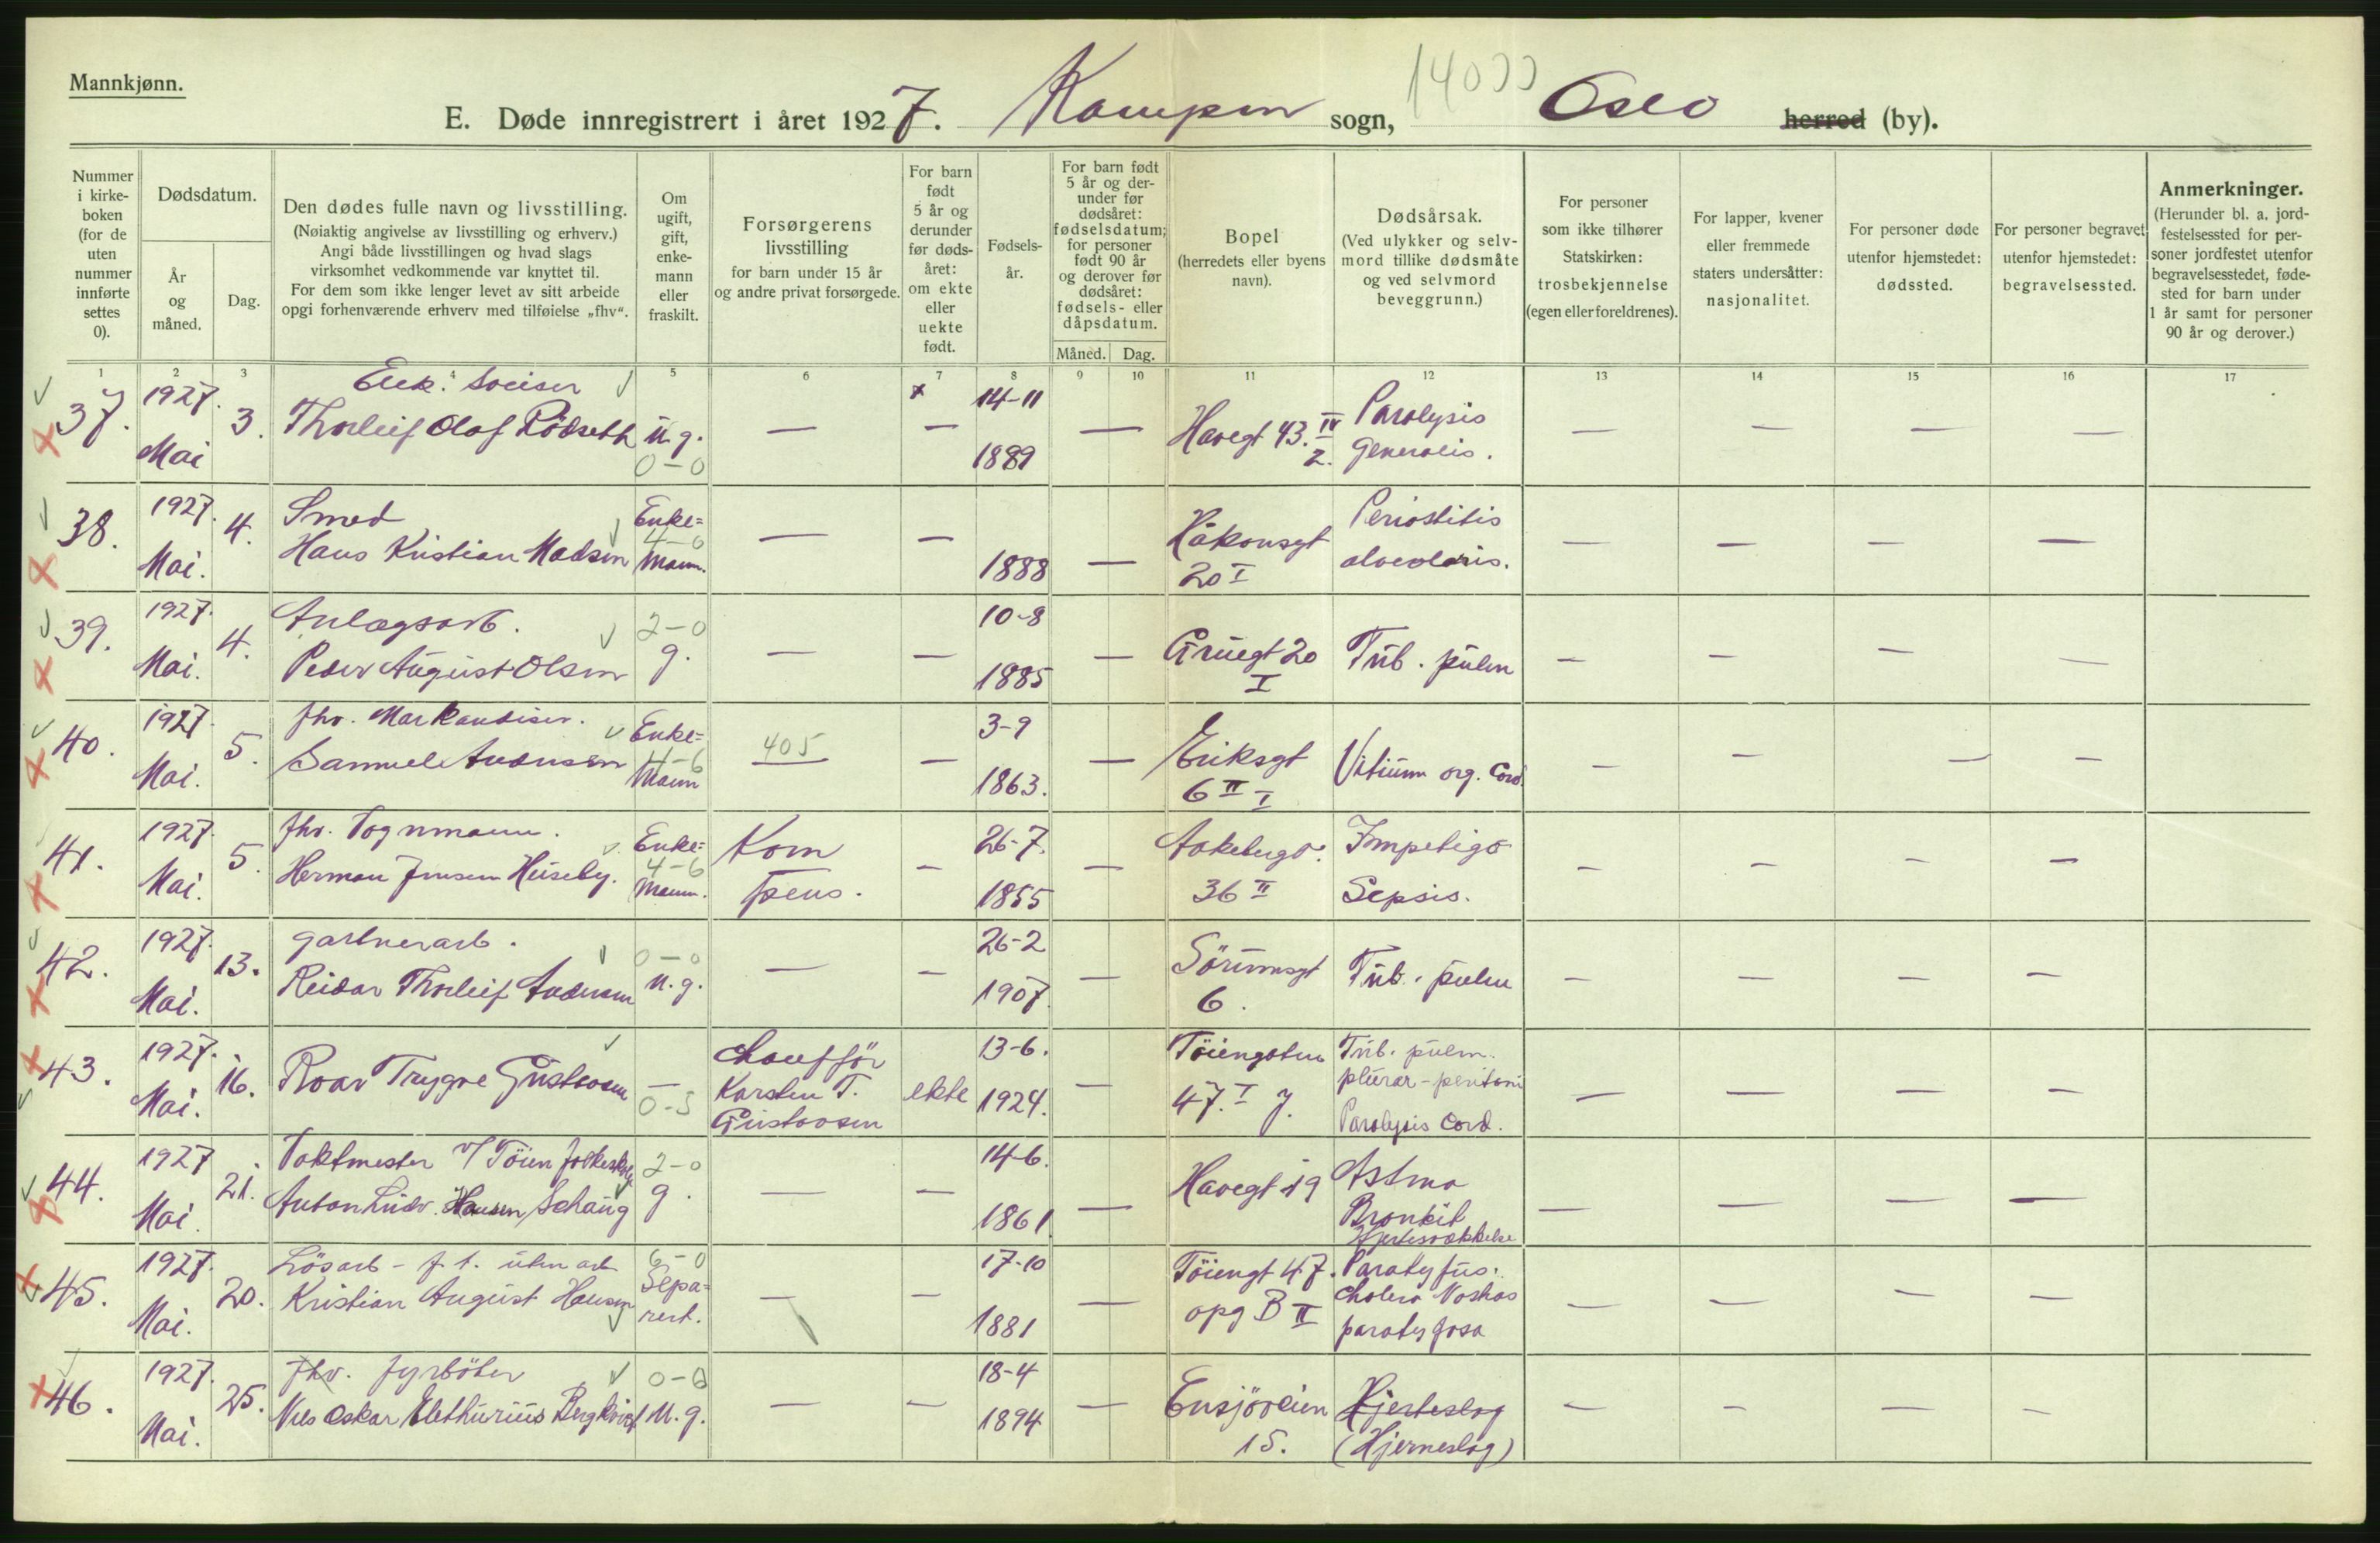 Mannkjønn.
14033
E. Døde innregistrert i året 1927. Kampen sogn, Oslo herred (by).
Nummer i kirke-boken (for de uten nummer innførte settes 0).
Dødsdatum.
År og måned.
Dag.
Den dødes fulle navn og livsstilling.
(Nøiaktig angivelse av livsstilling og erhverv.)
Angi både livsstillingen og hvad slags
virksomhet vedkommende var knyttet til.
For dem som ikke lenger levet av sitt arbeide
opgi forhenværende erhverv med tilføielse „fhv“.
Om ugift, gift, enke-mann eller fraskilt.
Forsørgerens livsstilling
for barn under 15 år
og andre privat forsørgede.
For barn født 5 år og derunder før døds-året: om ekte eller uekte født.
Fødsels-år.
For barn født 5 år og der-under før dødsåret: fødselsdatum; for personer født 90 år og derover før dødsåret: fødsels- eller dåpsdatum.
Måned. Dag.
Bopel
(herredets eller byens navn).
Dødsårsak.
(Ved ulykker og selv-mord tillike dødsmåte og ved selvmord beveggrunn.)
For personer som ikke tilhører Statskirken: trosbekjennelse (egen eller foreldrenes).
For lapper, kvener eller fremmede staters undersåtter: nasjonalitet.
For personer døde utenfor hjemstedet: dødssted.
For personer begravet utenfor hjemstedet: begravelsessted.
Anmerkninger.
(Herunder bl. a. jord-festelsessted for per-soner jordfestet utenfor begravelsesstedet, føde-sted for barn under 1 år samt for personer 90 år og derover.)
1 2 3 4 5 6 7 8 9 10 11 12 13 14 15 16 17
37. 1927. Mai 3. Thorleif Olaf Rödseth u.g. 0-0 — — 14-11 1889 — Havegt 43. IV 2. Paralysis Generalis. — — — —
38. 1927. Mai. 4. Smed Hans Kristian Madsen Enke= 4-0 mann. — — 1888 — Håkonsgt 20 I Periostitis alveolaris. — — — —
39. 1927. Mai. 4. Anlægsarb. Peder August Olsen 2-0 g. — — 10-8 1885 — Grüegt 20 I Tub. pulm — — — —
40. 1927. Mai. 5. fhv. Markandiser. Samuel Andersen Enke= 4-6 mann 405 — 3-9 1863. — Eriksgt 6 II I Vitium org. Cord. — — — —
41. 1927. Mai. 5. fhv. Vognmann. Herman Jensen Huseby. Enke= 4-6 mann. Kom pens. — 26-7. 1855 — Aakebergv. 36 II Impetigo Sepsis. — — — —
42. 1927. Mai. 13. gartnerarb. Reidar Thorleif Andersen 0-0 u.g. — — 26-2 1907. — Sörumsgt 6. Tub. pulm — — — —
43. 1927. Mai. 16. Roar Trygve Gustavsen — 0-5 Chaufför Karsten T. Gustavsen ekte 13-6. 1924. — Töiengaten 47. I 7. Tub. pulm. plurar-peritoni Paralysis Cord. — — — —
44. 1927 Mai. 21. Vaktmester v/ Töien folkeskole Anton Ludv. Hansen Schaug 2-0 g. — — 14-6. 1861 — Havegt 19 Astma Bronkit Hjertesvækkelse — — — —
45. 1927. Mai. 20. Lösarb - f.t. uten arb Kristian August Hansen 6-0 Sepa= rert. — — 17-10 1881 — Töiengt 47. opg B II Paratyfus. Cholera Nostras paratyfosa — — — —
46. 1927. Mai. 25. fhv. fyrböter Nils Oskar Elethurius Bergkvist 0-6 u.g. — — 18-4 1894 — Ensjöveien 15. Hjerteslag (Hjerneslag) — — — —